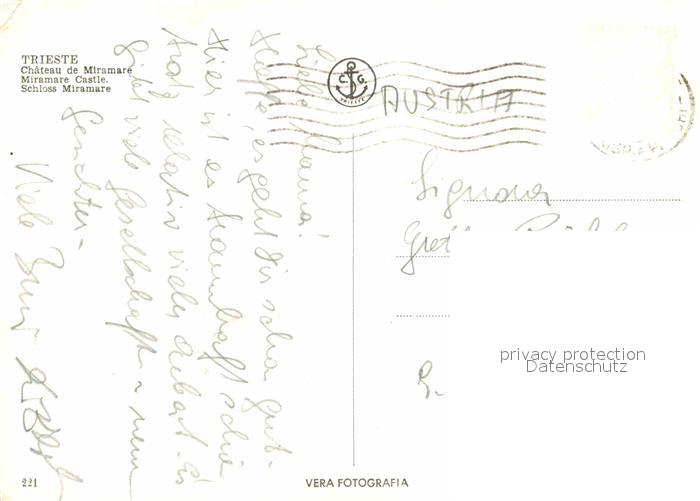 TRIESTE
Château de Miramare
Miramare Castle.
Schloss Miramare
C. G.
TRIESTE
AUSTRIA
Liebe Mama!
Hoffe es geht Dir schon gut -
Hier ist es traumhaft schön
trotz relativ vieler Arbeit. Es
gibt viele Gesellschaft - neue
Gesichter -
Viele
Signora
Gret
privacy protection
Datenschutz
221
VERA FOTOGRAFIA